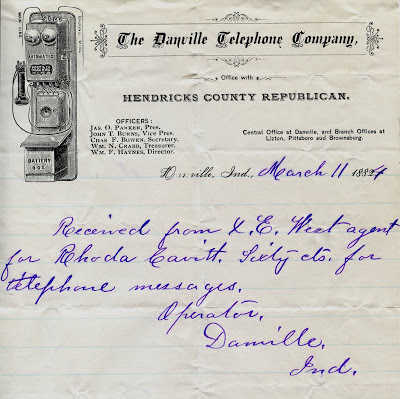 The Danville Telephone Company,
Office with
HENDRICKS COUNTY REPUBLICAN.
AUTOMATIC
BATTERY
BOX
OFFICERS:
JAS O. PARKER, Pres.
JOHN T. BURNS, Vice Pres.
CHAS F. BOVEN, Secretary.
WM. N. CRABB, Treasurer.
WM. F. HAYNES, Director.
Central Office at Danville, and Branch Offices at
Lizton, Pittsboro aud Brownsburg.
Danville, Ind., March 11 1884
Received from X. E. West agent
for Rhoda Cavitt. Sixty cts. for
telephone messages.
Operator,
Danville,
Ind.